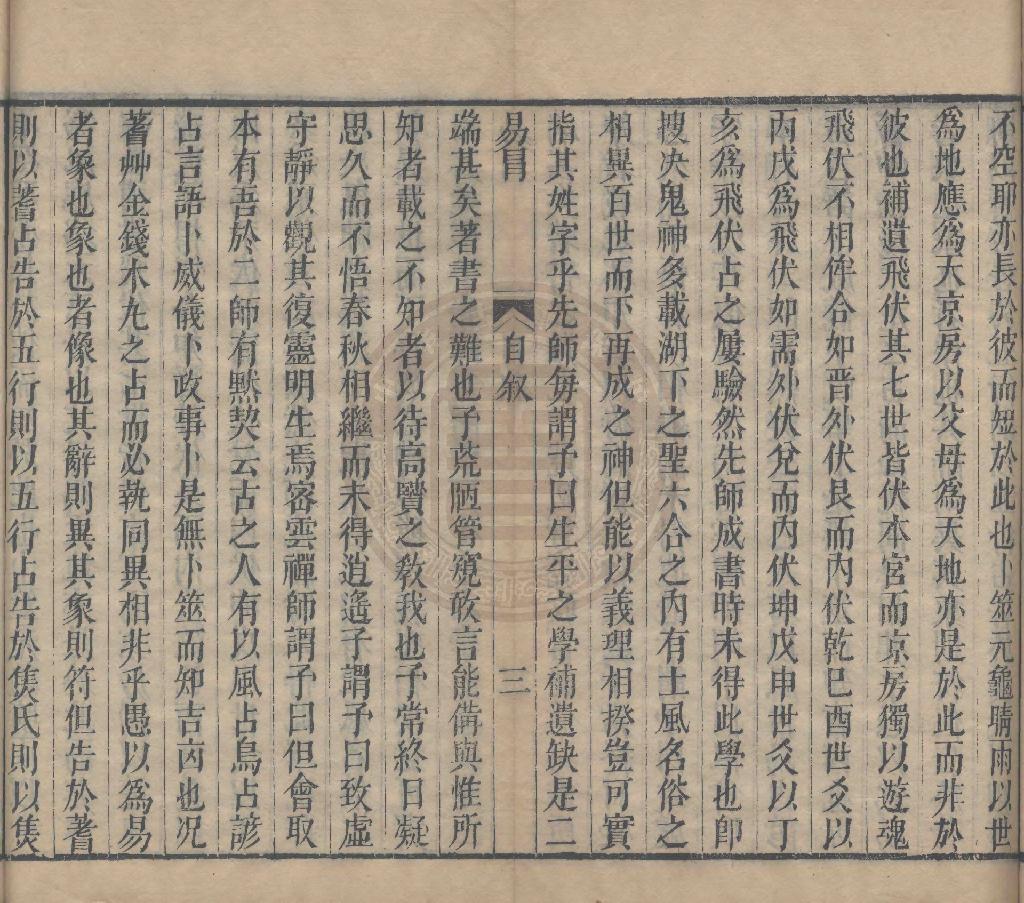 不空耶亦長於彼而短於此也卜筮元龜晴雨以世
爲地應爲天京房以父母爲天地亦是於此而非於
彼也補遺飛伏其七世皆伏本宮而京房獨以遊魂
飛伏不相侔合如晋外伏艮而內伏乾巳酉世爻以
丙戌爲飛伏如需外伏兌而內伏坤戊申世爻以丁
亥爲飛伏占之屢驗然先師成書時未得此學也即
搜决鬼神多載湖下之聖六合之內有土風名俗之
相異百世而下再成之神但能以義理相揆豈可實
指其姓字乎先師每謂予曰生平之學補遺缺是二
易冒
自叙
三
端甚矣著書之難也予荒陋管窺敢言能備與惟所
知者載之不知者以待高賢之教我也予常終日凝
思久而不悟春秋相繼而未得逍遙子謂予曰致虛
守靜以觀其復靈明生焉密雲禪師謂予曰但會取
本有吾於二師有黙契云古之人有以風占鳥占諺
占言語卜威儀卜政事卜是無卜筮而知吉凶也况
蓍艸金錢木丸之占而必執同異相非乎愚以爲易
者象也象也者像也其辭則異其象則符但告於蓍
則以蓍占告於五行則以五行占告於焦氏則以焦